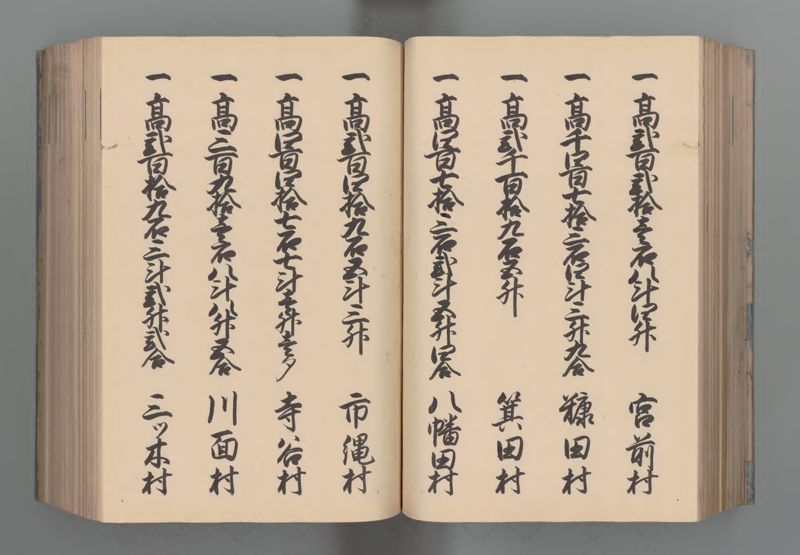 一 高弐百弐拾壱石八斗四升 宮前村
一 高千四百七拾二石四斗三升九合 糠田村
一 高弐千百拾九石五升 箕田村
一 高四百七拾二石弐斗五升四合 八幡田村
一 高弐百四拾九石五斗三升 市縄村
一 高四百四拾七石七斗壱升壱夕 寺谷村
一 高二百九拾壱石八斗八升五合 川面村
一 高弐百拾九石二斗弐升弐合 三ツ木村